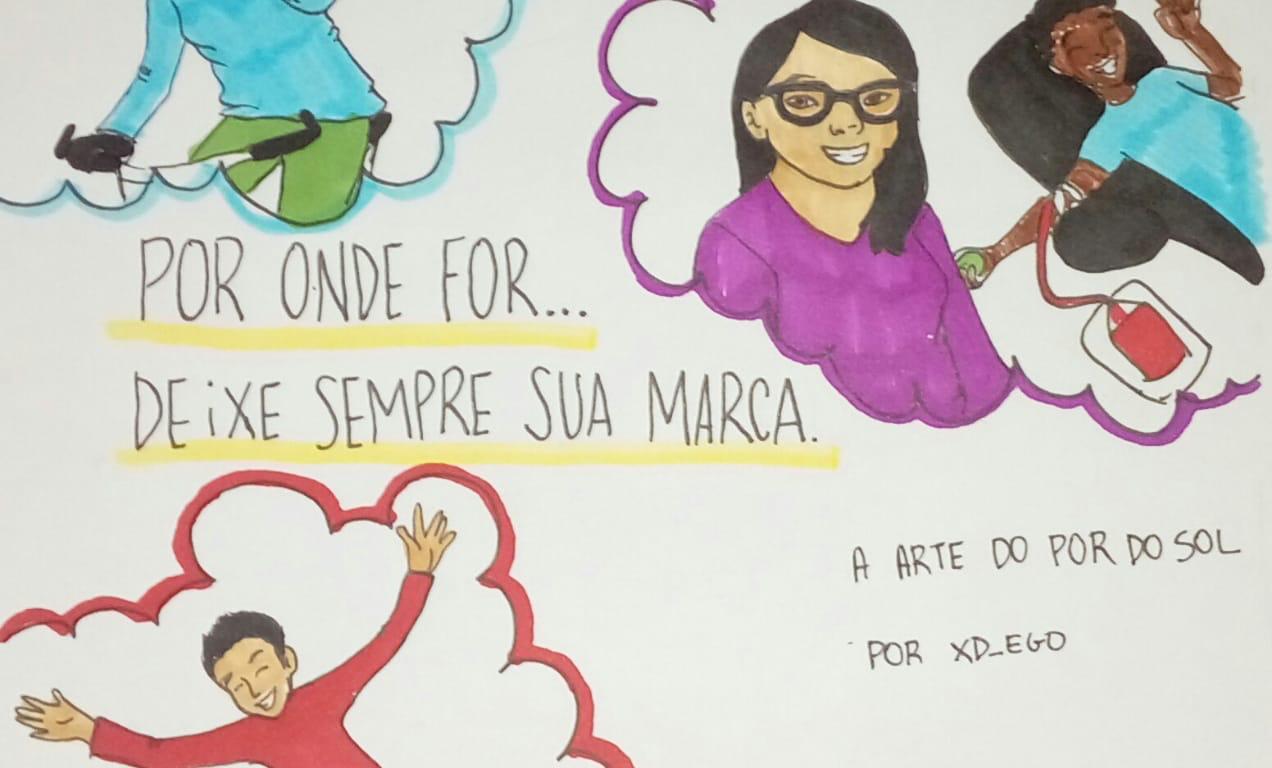 POR ONDE FOR...
DEiXE SEMPRE SUA MARCA.
A ARTE DO POR DO SOL
POR XD_EGO